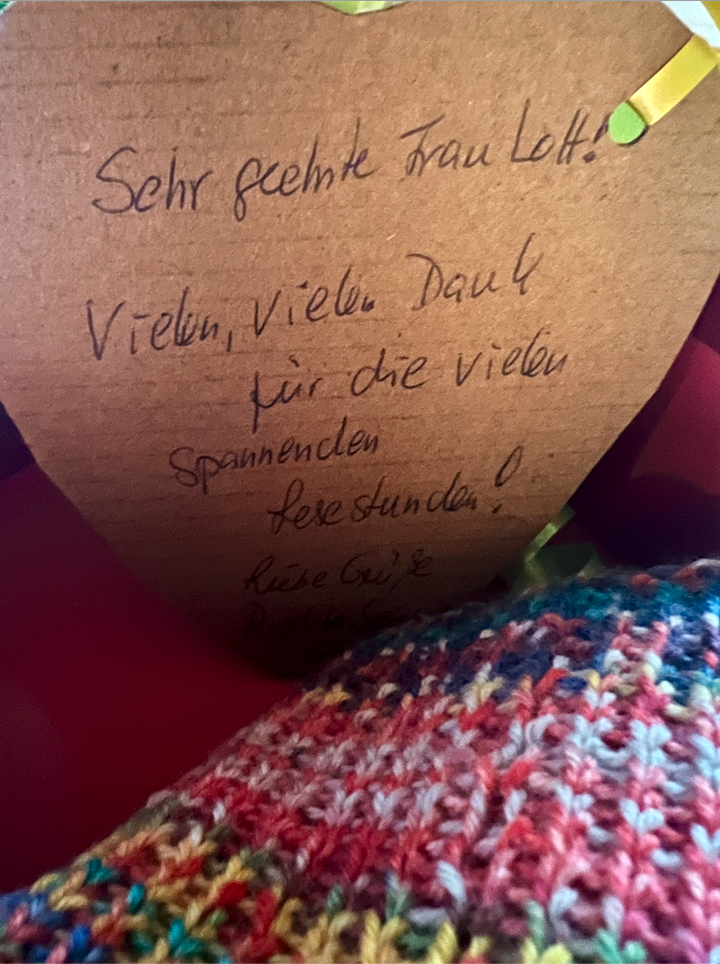 Sehr geehrte Frau Lott!
Vielen, vielen Dank
für die vielen
spannenden
Lesestunden!
Liebe Grüße